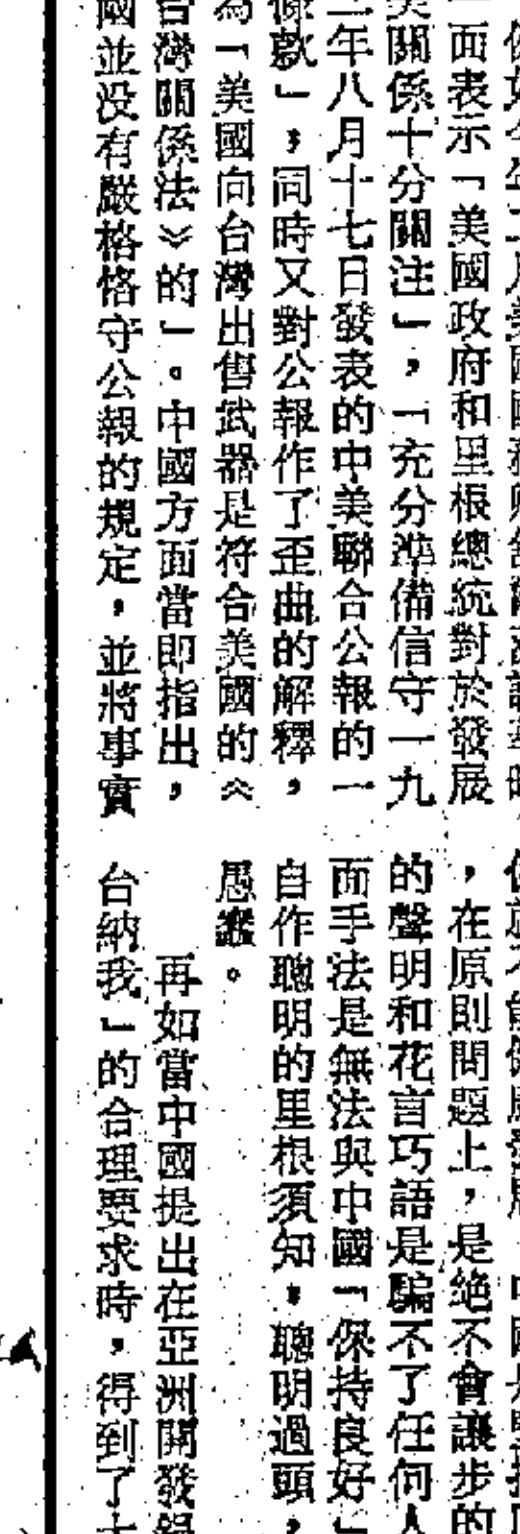 面表示「美國政府和里根總統對於發展
美關係十分關注」，「充分準備信守一九
二年八月十七日發表的中美聯合公報的一
條款」，同時又對公報作了歪曲的解釋，
為「美國向台灣出售武器是符合美國的《
台灣關係法》的」。中國方面當即指出，
國並没有嚴格恪守公報的規定，並將事實
，在原則問題上，是絕不會讓步的
的聲明和花言巧語是騙不了任何人
面手法是無法與中國「保持良好」
自作聰明的里根須知，聰明過頭，
愚蠢。
再如當中國提出在亞洲開發銀
台納我」的合理要求時，得到了